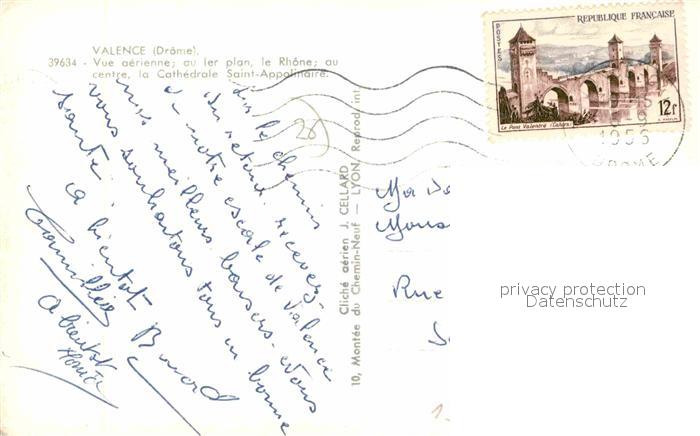 VALENCE (Drôme).
39634 - Vue aérienne; au 1er plan, le Rhône; au
centre, la Cathédrale Saint-Appolinaire.
sur le chemin
du retour, recevez-
de notre escale de Valence
mes meilleurs baisers. Vous
vous souhaitons tous une bonne
santé.
a bientôt Bernard
a bientôt
28
Cliché aérien J. CELLARD
10, Montée du Chemin-Neuf — LYON. Reprod. int.
REPUBLIQUE FRANÇAISE
POSTES
12f
Le Pont Valentré (Cahors)
1956
DROME
Mada
Mons
Rue
privacy protection
Datenschutz